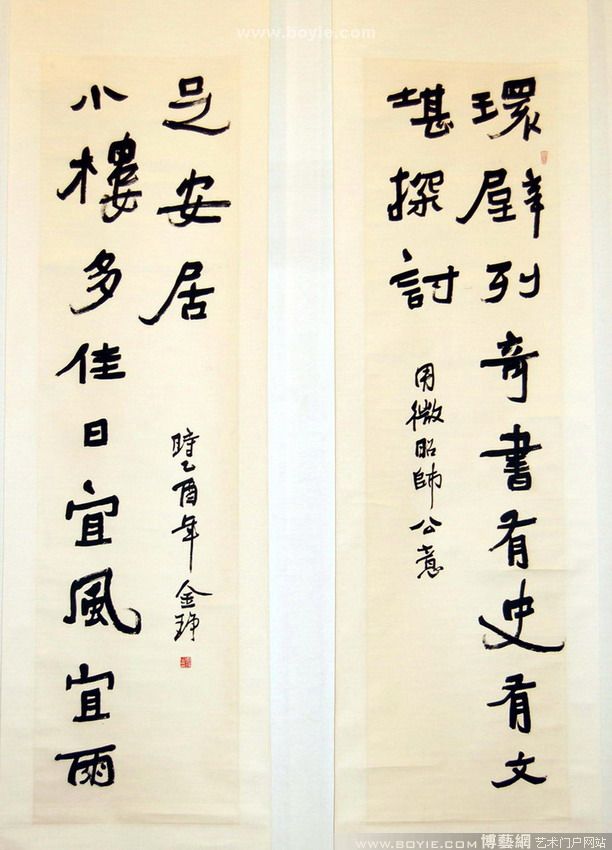 www.boyie.com
環壁列奇書有史有文
堪探討
用微昭師公意
小樓多佳日宜風宜雨
足安居
時乙酉年 金琤
WWW.BOYIE.COM 博藝網 艺术门户网站